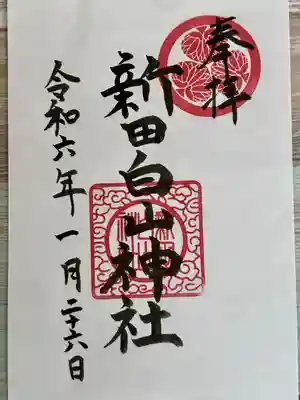 奉拝
新田白山神社
令和六年一月二十六日